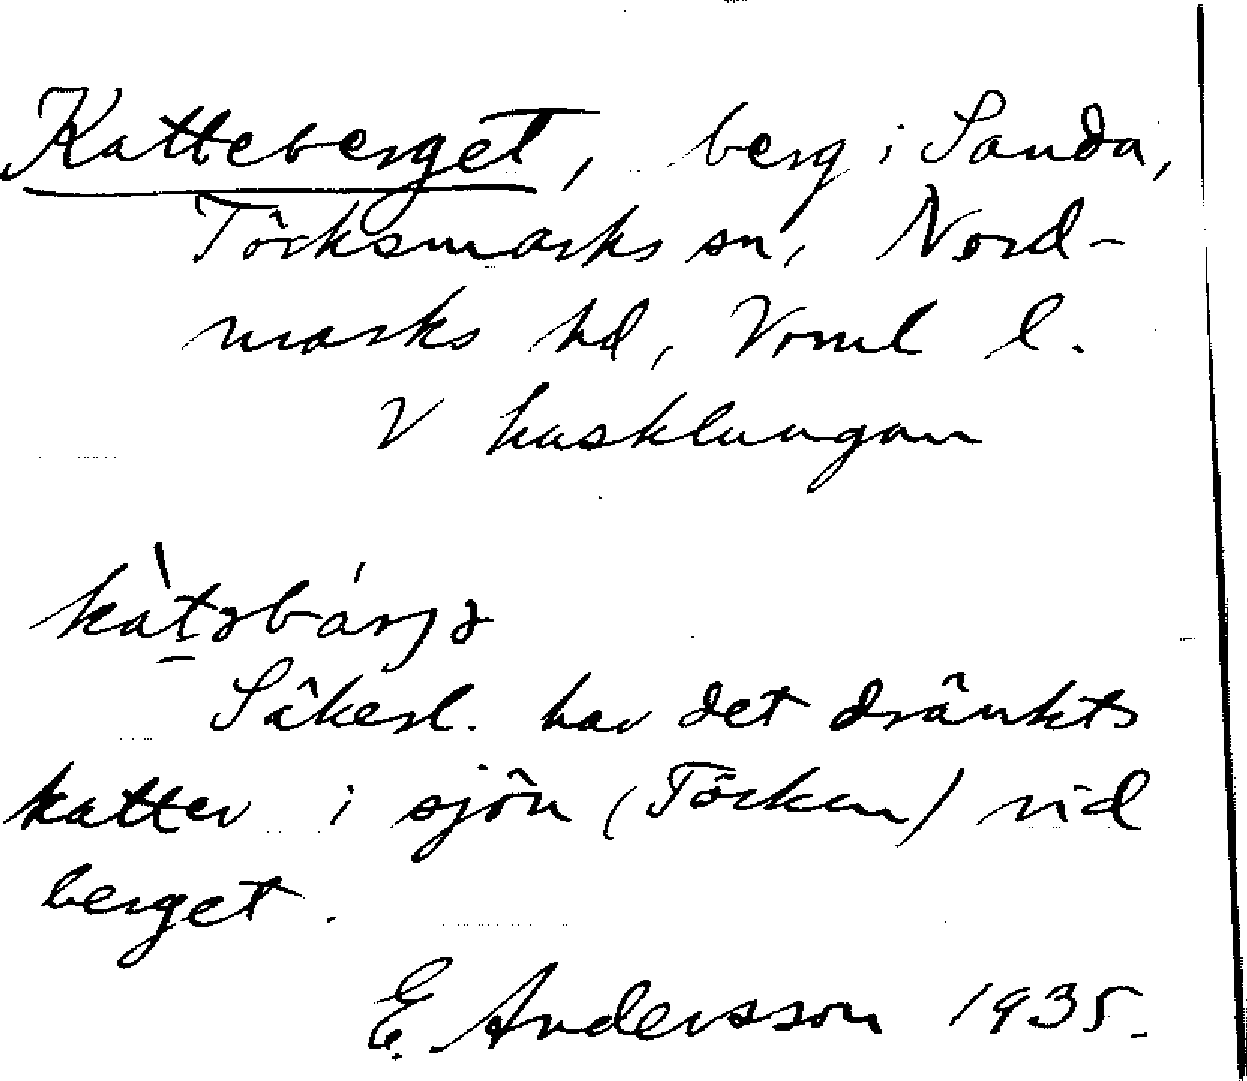 Katteberget, berg i Sanda,
Töcksmarks sn, Nord-
marks hd, Vrml l.
V husklungan
kàtəbárjə
Säkerl. har det dränkts
katter i sjön (Töcken) vid
berget.
E. Andersson 1935.